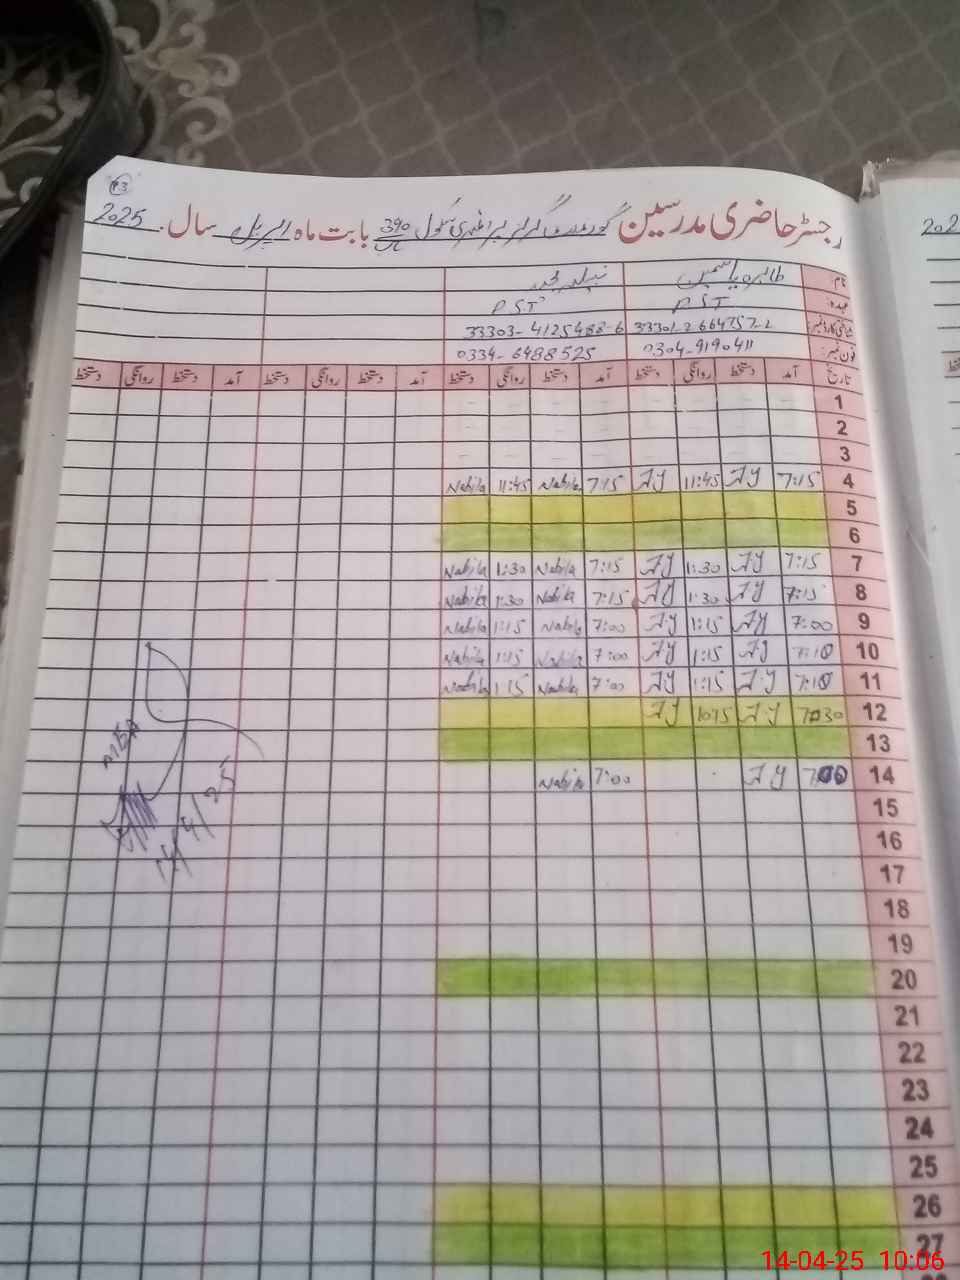 رجسٹر حاضری مدرسین گورنمنٹ گرلز پرائمری سکول 390 بابت ماہ اپریل سال 2025
نام: طاہرہ یاسمین
عہدہ: P.S.T P.S.T
33301-2664757-2 33303-4125488-6
فون نمبر: 0304-9190411 0334-6488525
تاریخ آمد دستخط روانگی دستخط آمد دستخط روانگی دستخط آمد دستخط روانگی دستخط آمد دستخط روانگی دستخط
1
2
3
4 7:15 11:45 7:15 Nabila 11:45 Nabila
5
6
7 7:15 1:30 7:15 Nabila 1:30 Nabila
8 7:15 1:30 7:15 Nabila 1:30 Nabila
9 7:00 1:15 7:00 Nabila 1:15 Nabila
10 7:10 1:15 7:00 Nabila 1:15 Nabila
11 7:10 1:15 7:00 Nabila 1:15 Nabila
12
13
14 7:00 7:00 Nabila
15
16
17
18
19
20
21
22
23
24
25
26
27
14/4/25
14-04-25 10:06